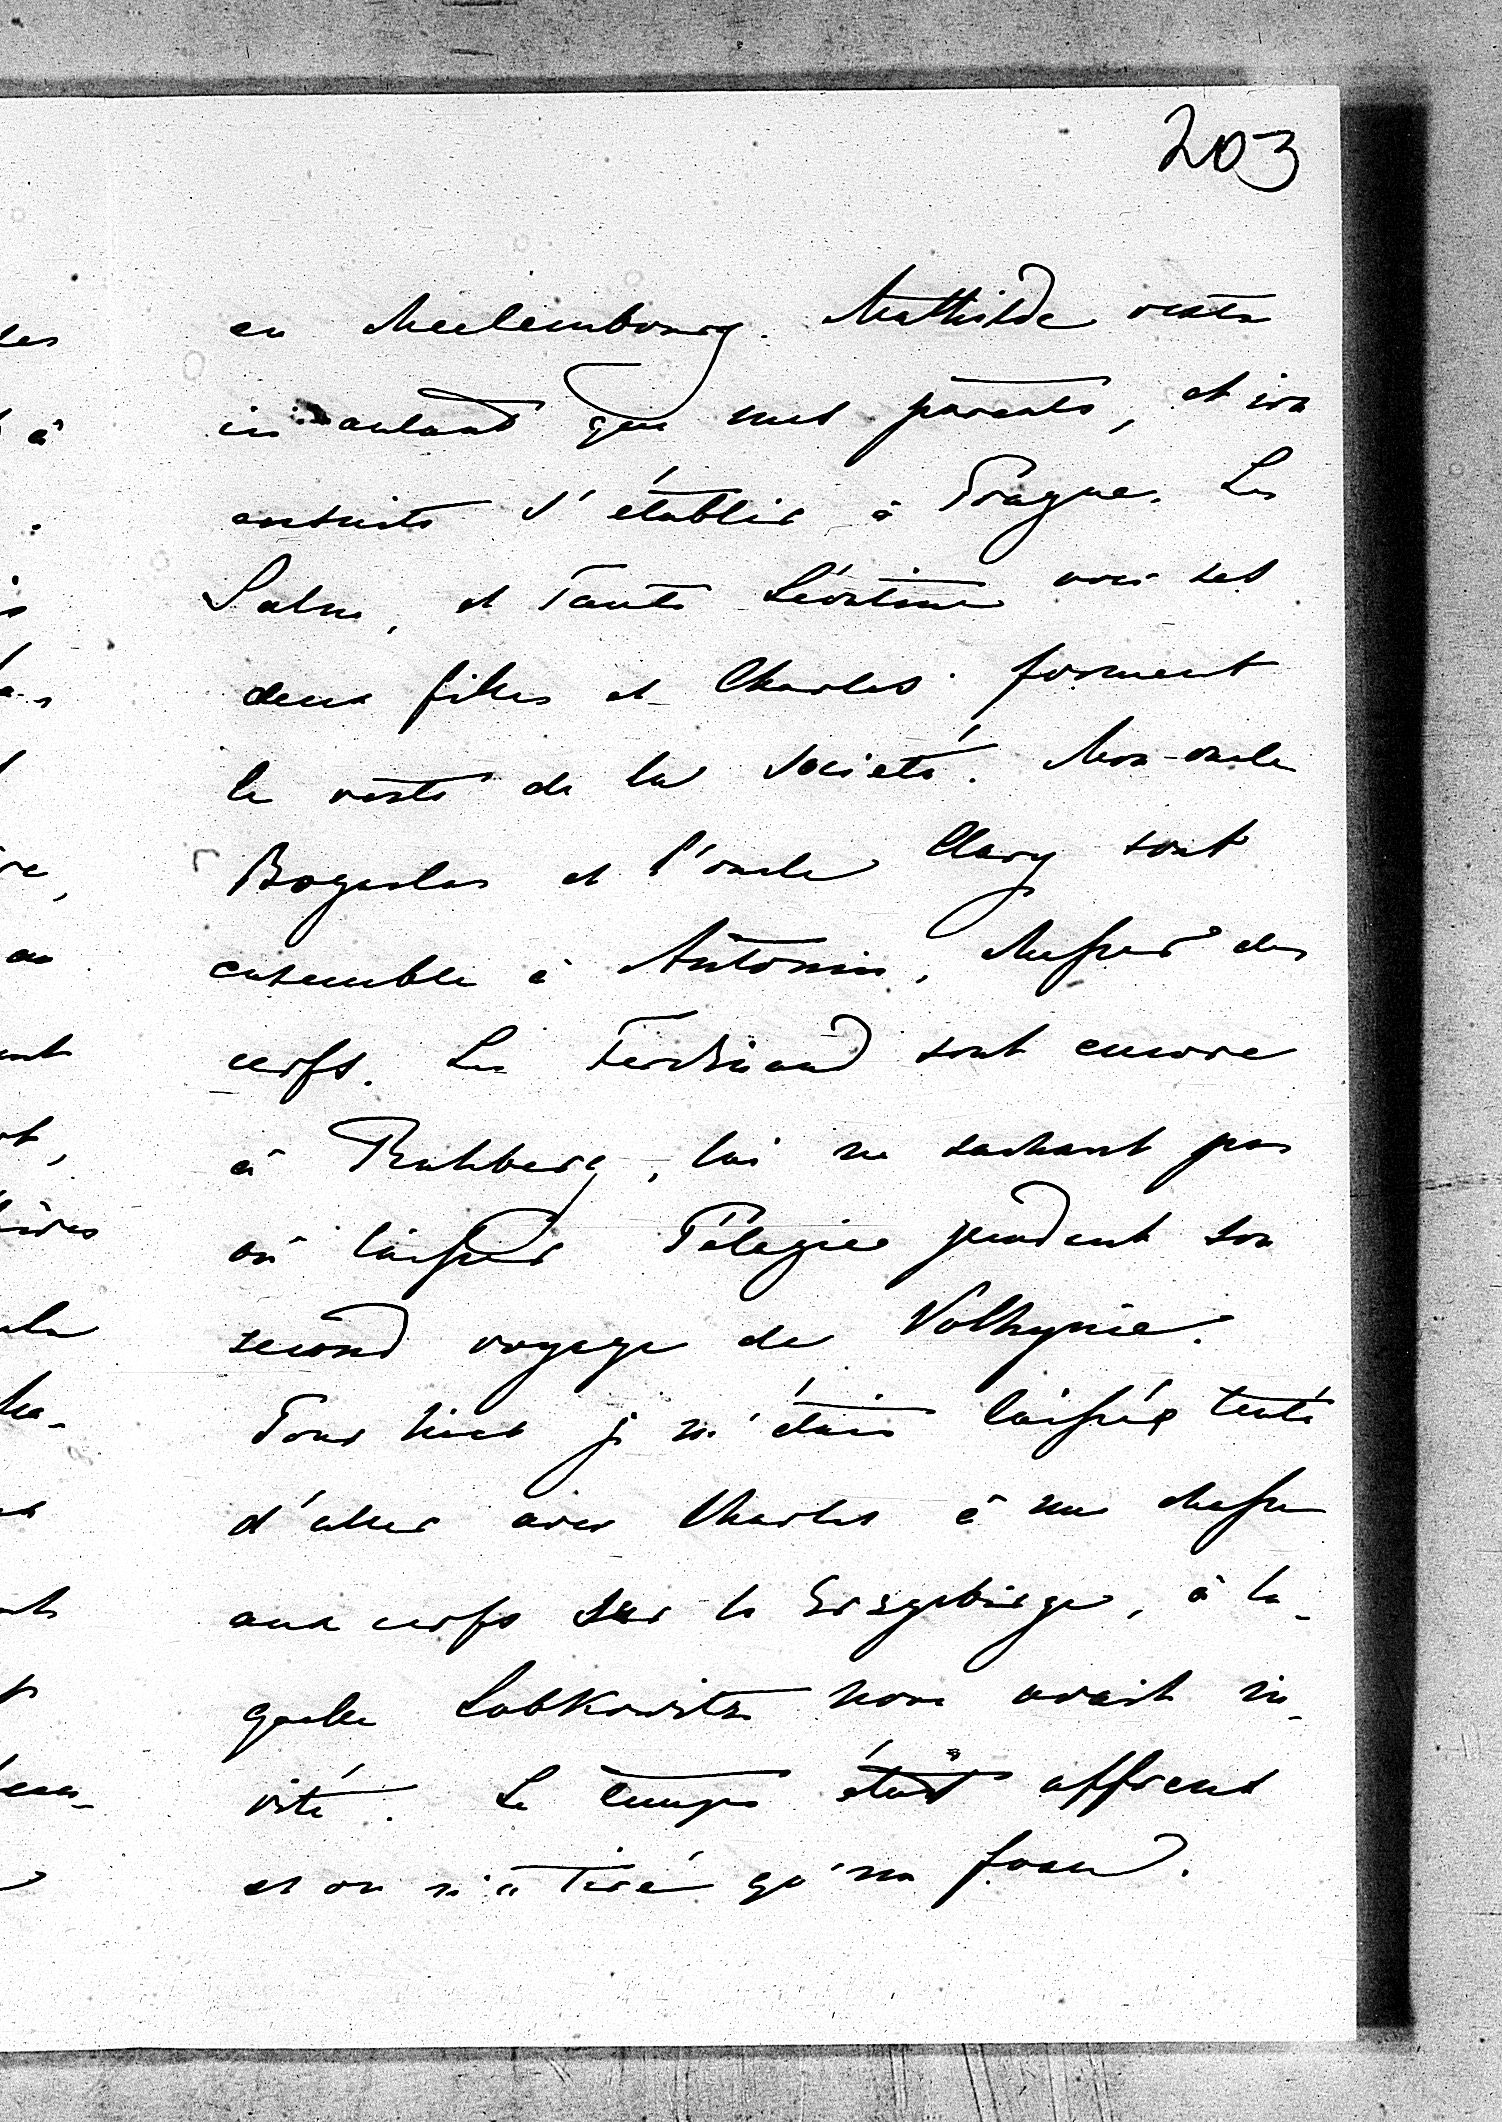 203
en Mecklembourg. Mathilde reste
ici autant que mes parents, et ira
ensuite s'établir à Prague. Les
Salm, et Tante Léontine avec ses
deux filles et Charles forment
le reste de la société. Mon oncle
Boguslas et l'oncle Clary sont
ensemble à Antonin, chasser des
cerfs. Les Ferdinand sont encore
à Ruhberg, lui ne sachant pas
où laisser Pélagie pendant son
second voyage de Volhynie.
Pour hier je m'étais laissée tenté
d'aller avec Charles à une chasse
aux cerfs sur le Erzgebirge, à la-
quelle Lobkowitz nous avait in-
vité. Le temps était affreux
et on n'a tiré qu'un